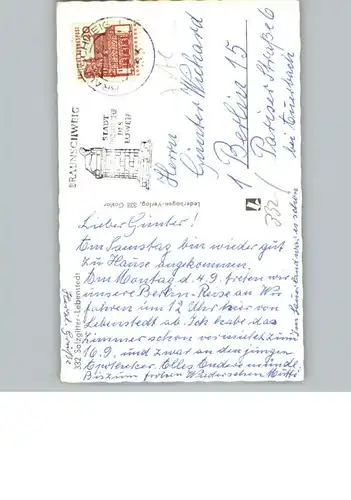 BRAUNSCHWEIG
STADT
HEINRICHS
DES
LÖWEN
Herrn
Günter
1 Berlin 15
Pariser Straße 6
bei
Lederbogen-Verlag, 338 Goslar
332 Salzgitter-Lebenstedt
Lieber Günter!
Am Samstag bin wieder gut
zu Hause angekommen.
Am Montag d. 4.9. treten wir
unsere Berlin-Reise an Wir
fahren um 12 Uhr hier von
Lebenstedt ab. Ich habe das
Zimmer schon vermietet zum
16.9. und zwar an den jungen
Apotheker. Alles Andere mündl.
Bis zum frohen Wiedersehen Mutti
Im Sauerland war es schön
Herzl. Grüße